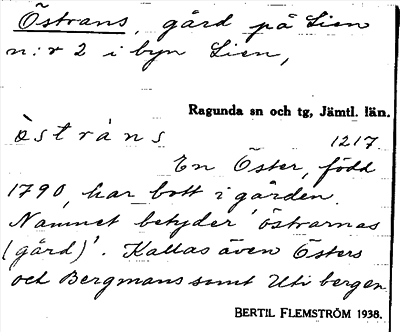 Östrans, gård på Lien
n:r 2 i byn Lien,
Ragunda sn och tg, Jämtl. län.
òstráns 1217
En Öster, född
1790, har bott i gården.
Namnet betyder 'östrarnas
(gård)'. Kallas även Östers
och Bergmans samt Uti bergen
BERTIL FLEMSTRÖM 1938.